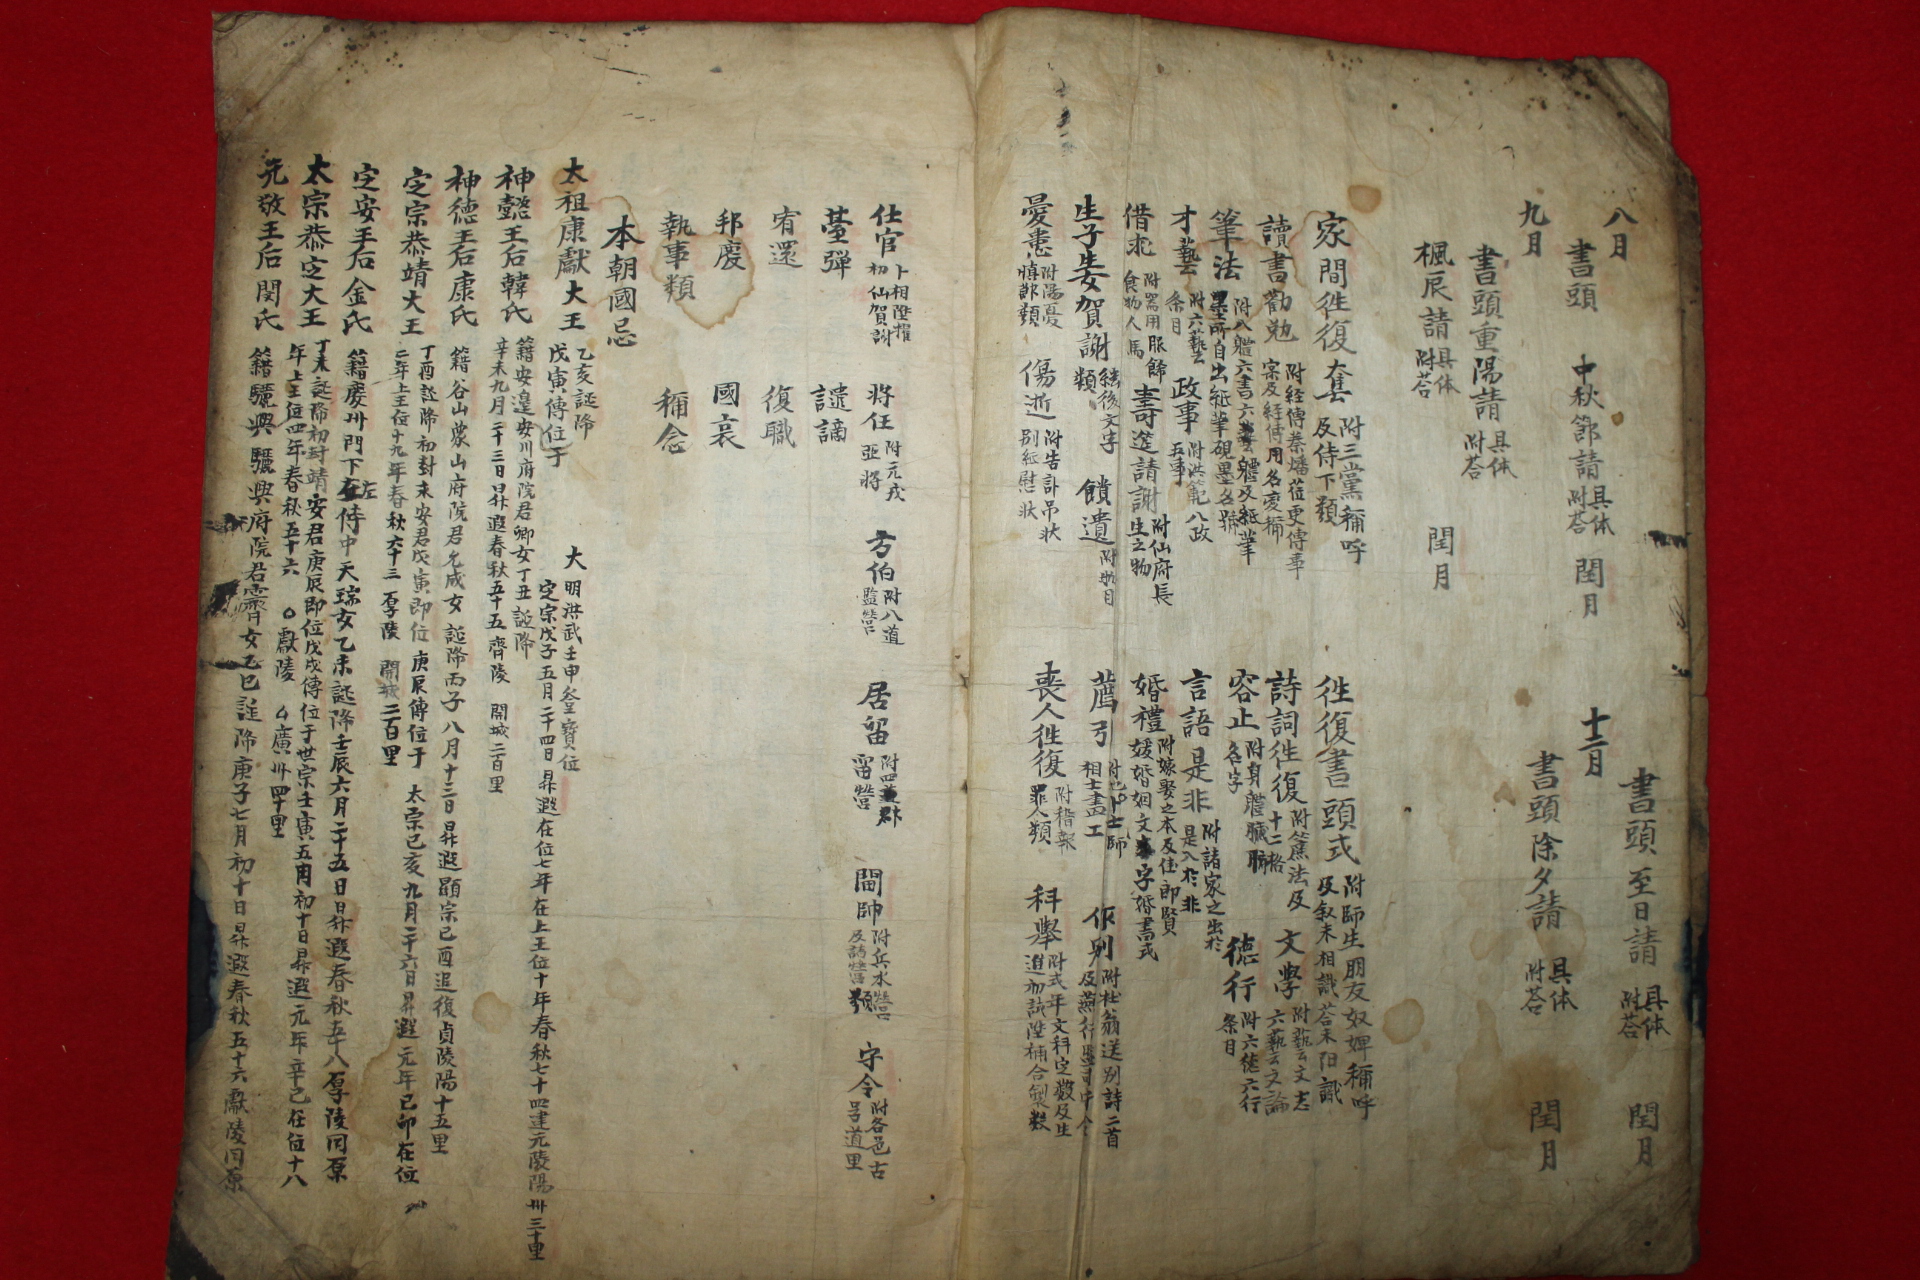 八月
書頭 中秋節請 具体附答 閏月
九月
書頭重陽請 具体附答
楓辰請 具体附答 閏月
書頭至日請 具体附答 閏月
十二月
書頭除夕請 具体附答 閏月
家間徃復套 附三黨稱呼及侍下類 徃復書頭式 附師生朋友奴婢稱呼及叙未相識答未相識
讀書勸勉 詩詞徃復 十二格 文學 附藝文志六藝文論
筆法 附八體六書 容止 附身體 名字 德行 附六德六行条目
才藝 附六藝条目 政事 附洪範八政五事 言語是非 附諸家之出於是入於非
借求 附器用服餙食物人馬 壽筵請謝 附仙府長生之物 婚禮 附嫁娶之本及佳郞賢
生子女賀謝 継後文字類 饋遺 附物目 薦引 相士畫工 作別 附杜翁送別詩二首
憂患 附陽憂慎節類 傷逝 附告訃吊狀別紙慰狀 喪人徃復 附稽報罪人類 科擧 附式年文科定數及生進初試陞補合製數
仕官 卜相陞擢初仙賀謝 將任 附元戎亞將 方伯 附八道監營 居留 附四郡留營 閫帥 附兵水營 守令 附各邑古号道里
臺彈 譴謫
宥還 復職
邦慶 國哀
執事類 稱念
本朝國忌
太祖康獻大王 乙亥誕降 大明洪武壬申登寶位戊寅傳位于定宗戊子五月二十四日昇遐在位七年在上王位十年春秋七十四建元陵陽州三十里
神懿王后韓氏 籍安邊安川府院君卿女丁丑誕降辛未九月二十三日昇遐春秋五十五齊陵 開城二百里
神德王后康氏 籍谷山象山府院君允成女 誕降丙子八月十三日昇遐顯宗己酉追復貞陵陽十五里
定宗恭靖大王 丁酉誕降初封永安君戊寅即位庚辰傳位于太宗己亥九月二十六日昇遐元年己卯在位二年上王位十九年春秋六十三厚陵 開城二百里
定安王后金氏 籍慶州門下左侍中天瑞女乙未誕降壬辰六月二十五日昇遐春秋五十八厚陵同原
太宗恭定大王 丁未誕降初封靖安君庚辰即位戊戌傳位于世宗壬寅五月初十日昇遐元年辛巳在位十八年上王位四年春秋五十六 獻陵 廣州四十里
元敬王后閔氏 籍驪興驪興府院君霽女乙巳誕降庚子七月初十日昇遐春秋五十六獻陵同原